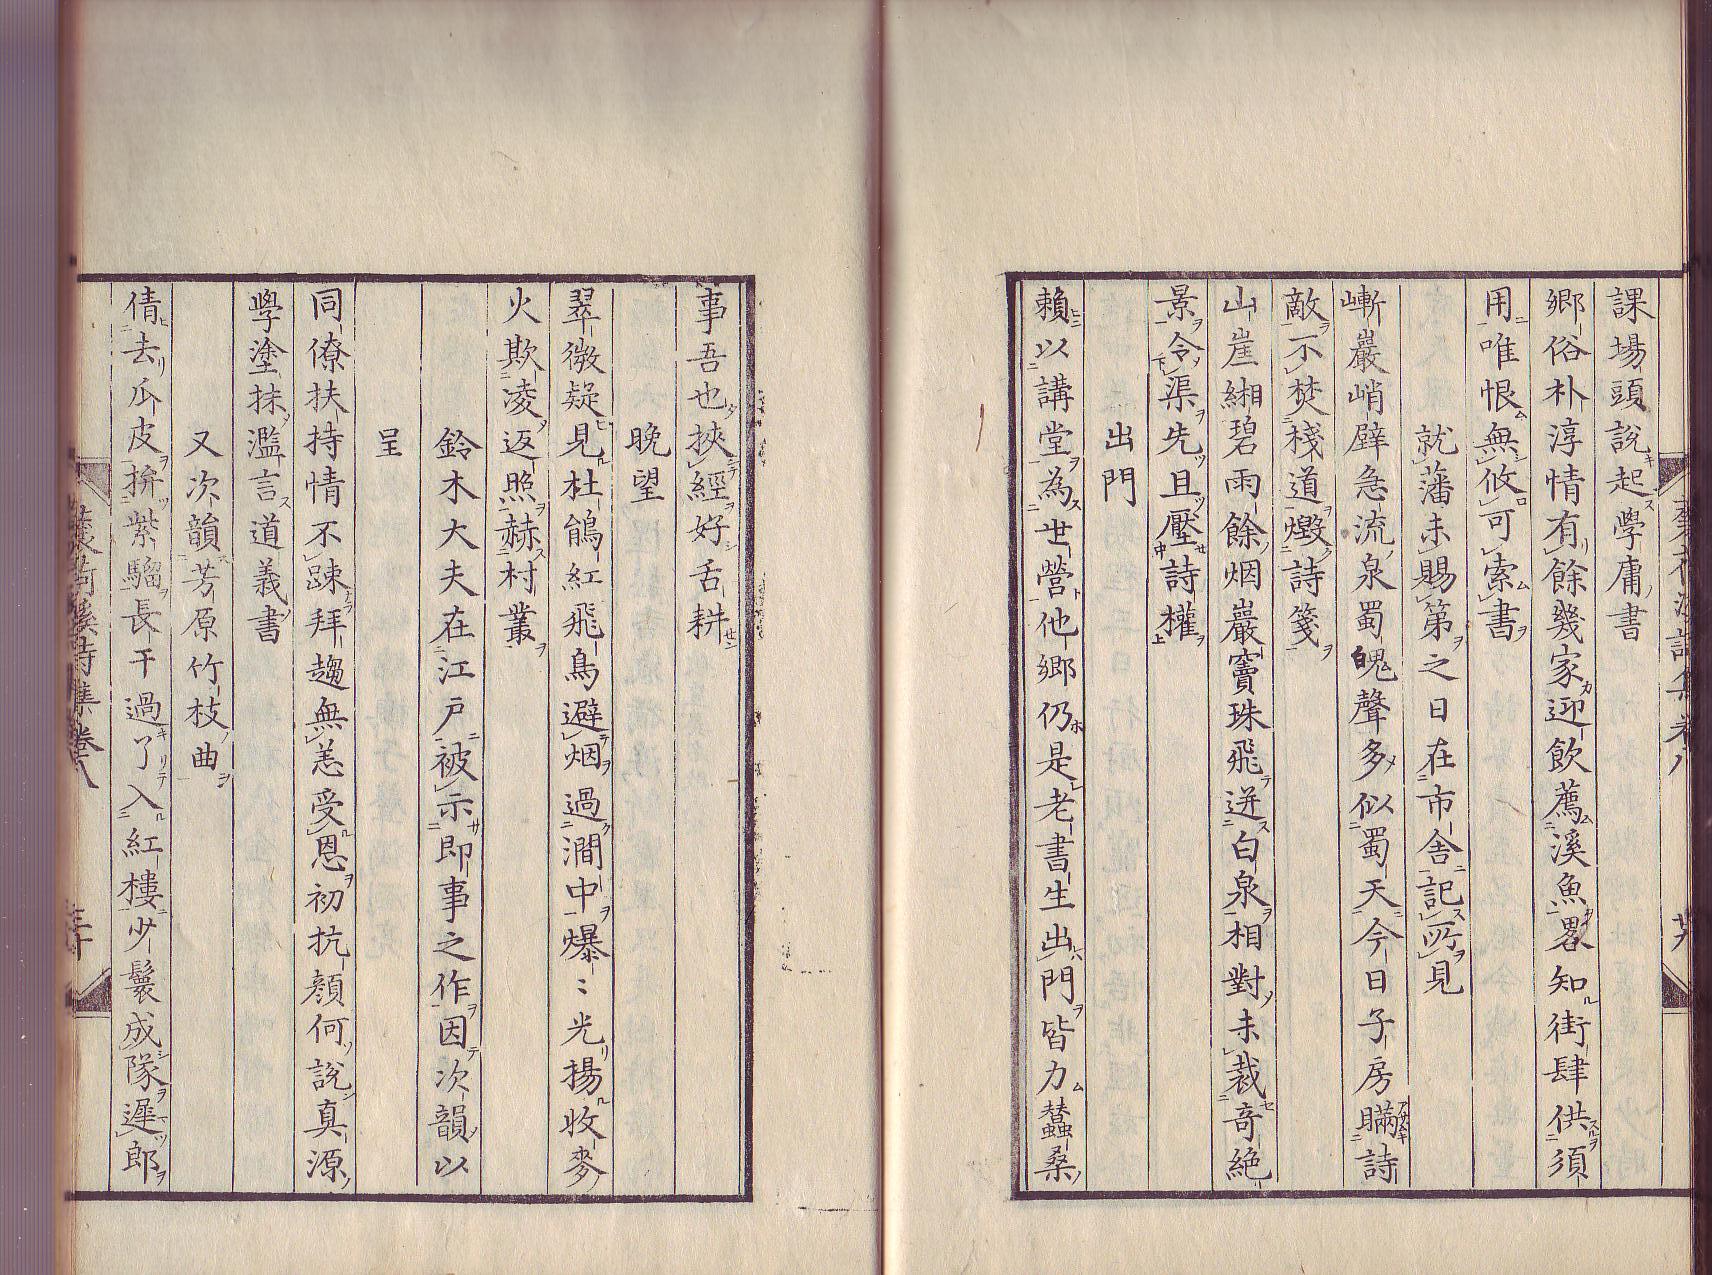 課場頭說起學庸書
鄉俗朴淳情有餘幾家迎飲薦溪魚畧知街肆供須
用唯恨無攸可索書
就藩未賜第之日在市舍記所見
嶄巖峭壁急流泉蜀魄聲多似蜀天今日子房瞞詩
敵不焚棧道燬詩箋
山崖緗碧雨餘烟巖竇珠飛迸白泉相對未裁奇絶
景令渠先且壓詩權
出門
賴以講堂為世營他鄉仍是老書生出門皆力蠶桑
事吾也挾經好舌耕
晚望
翠微疑見杜鵑紅飛鳥避烟過澗中爆〻光揚收麥
火欺凌返照赫村叢
鈴木大夫在江戸被示即事之作因次韻以
呈
同僚扶持情不踈拜趨無恙受恩初抗顏何說真源
學塗抹濫言道義書
又次韻芳原竹枝曲
倩去瓜皮拚紫騮長干過了入紅樓少鬟成隊遲郎
詩集卷八